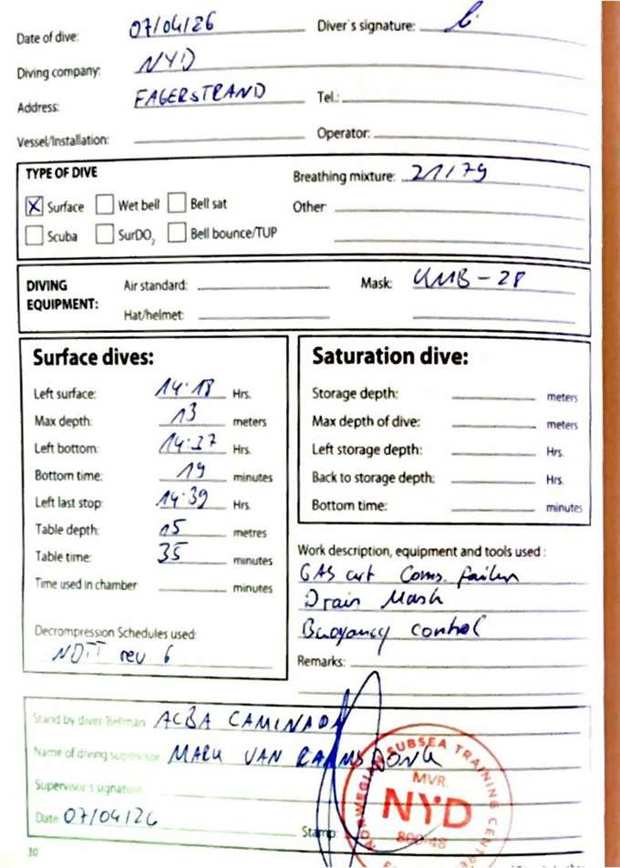 Date of dive: 07/04/26 Diver's signature:
Diving company: NYD
Address: FAGERSTRAND Tel.:
Vessel/Installation: Operator:
TYPE OF DIVE Breathing mixture: 21/79
X Surface Wet bell Bell sat Other
Scuba SurDO₂ Bell bounce/TUP
DIVING EQUIPMENT: Air standard: Mask: KMB-28
Hat/helmet:
Surface dives:
Left surface: 14:18 Hrs.
Max depth: 13 meters
Left bottom: 14:37 Hrs.
Bottom time: 19 minutes
Left last stop: 14:39 Hrs.
Table depth: 15 metres
Table time: 35 minutes
Time used in chamber minutes
Decrompression Schedules used:
NDTT rev 6
Saturation dive:
Storage depth: meters
Max depth of dive: meters
Left storage depth: Hrs.
Back to storage depth: Hrs.
Bottom time: minutes
Work description, equipment and tools used:
GAS cut Coms. failure
Drain Mask
Buoyancy control
Remarks:
Stand by diver ACBA CAMINADA
Name of diving supervisor MARK VAN
Supervisor's signature
Date 07/04/26 Stamp
NORWEGIAN SUBSEA TRAINING CENTRE
MVR.
NYD
30